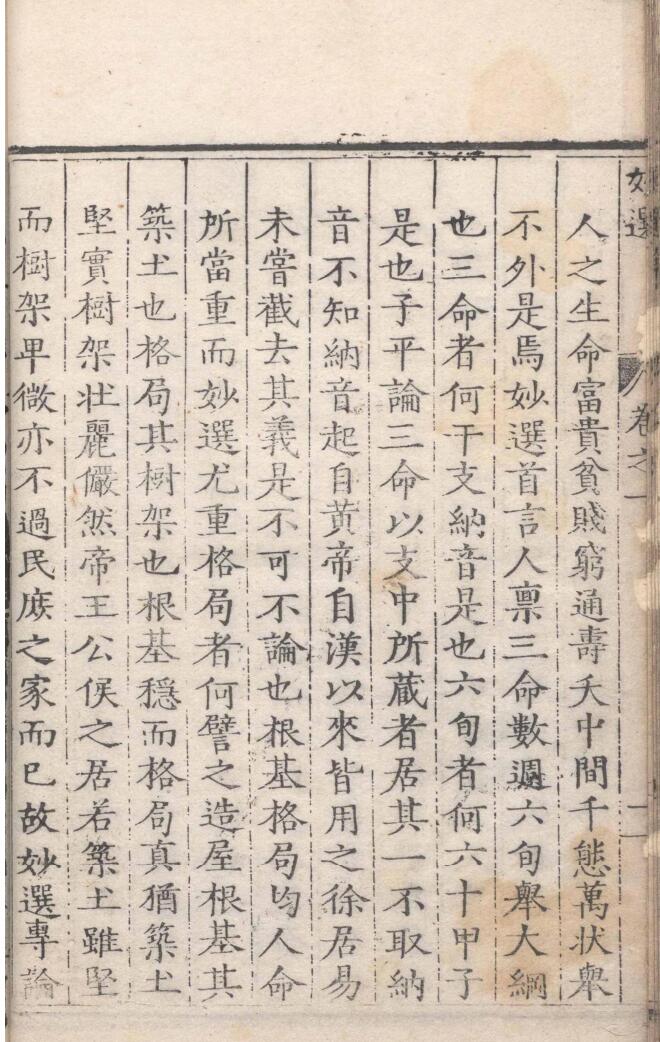 妙選 卷之一 二
人之生命富貴貧賤窮通壽夭中間千態萬狀舉
不外是焉妙選首言人禀三命數週六旬舉大綱
也三命者何干支納音是也六旬者何六十甲子
是也子平論三命以支中所藏者居其一不取納
音不知納音起自黃帝自漢以來皆用之徐居易
未嘗截去其義是不可不論也根基格局均人命
所當重而妙選尤重格局者何譬之造屋根基其
築土也格局其樹架也根基穩而格局真猶築土
堅實樹架壯麗儼然帝王公侯之居若築土雖堅
而樹架卑微亦不過民庶之家而已故妙選專論